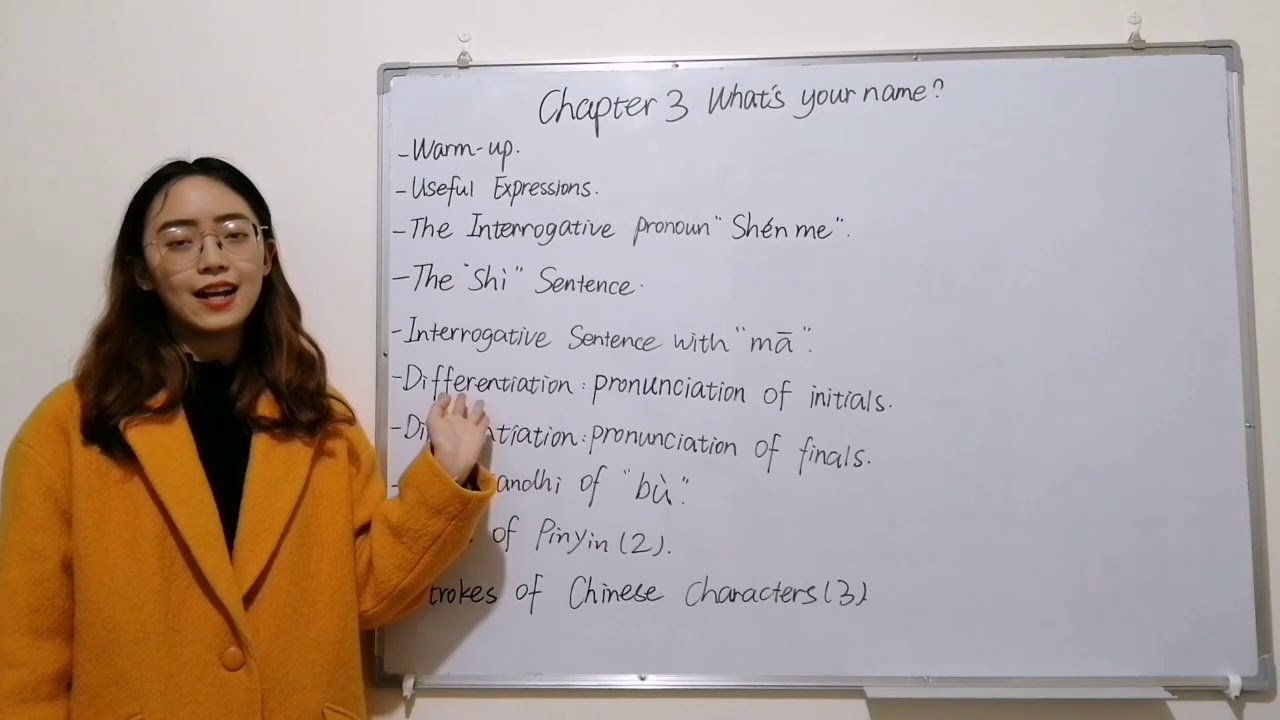 Chapter 3 What's your name?
- Warm-up.
- Useful Expressions.
- The Interrogative pronoun "Shén me".
- The "Shì" Sentence.
- Interrogative Sentence with "mā".
- Differentiation: pronunciation of initials.
- Di ntiation: pronunciation of finals.
- andhi of "bù".
of Pinyin (2).
trokes of Chinese Characters (3)